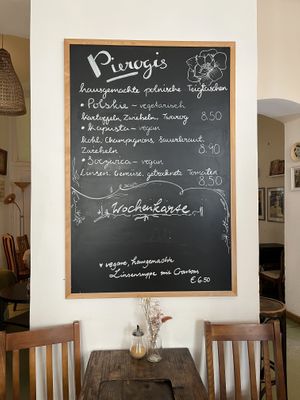 Pierogis
hausgemachte polnische Teigtaschen
• Polskie – vegetarisch
Kartoffeln, Zwiebeln, Twarog 8.50
• Kapusta – vegan
Kohl, Champignons, Sauerkraut,
Zwiebeln 8.90
– vegan
Linsen, Gemüse, getrocknete Tomaten
8,50
Wochenkarte
♥ vegane, hausgemachte
Linsensuppe mit
€ 6.50